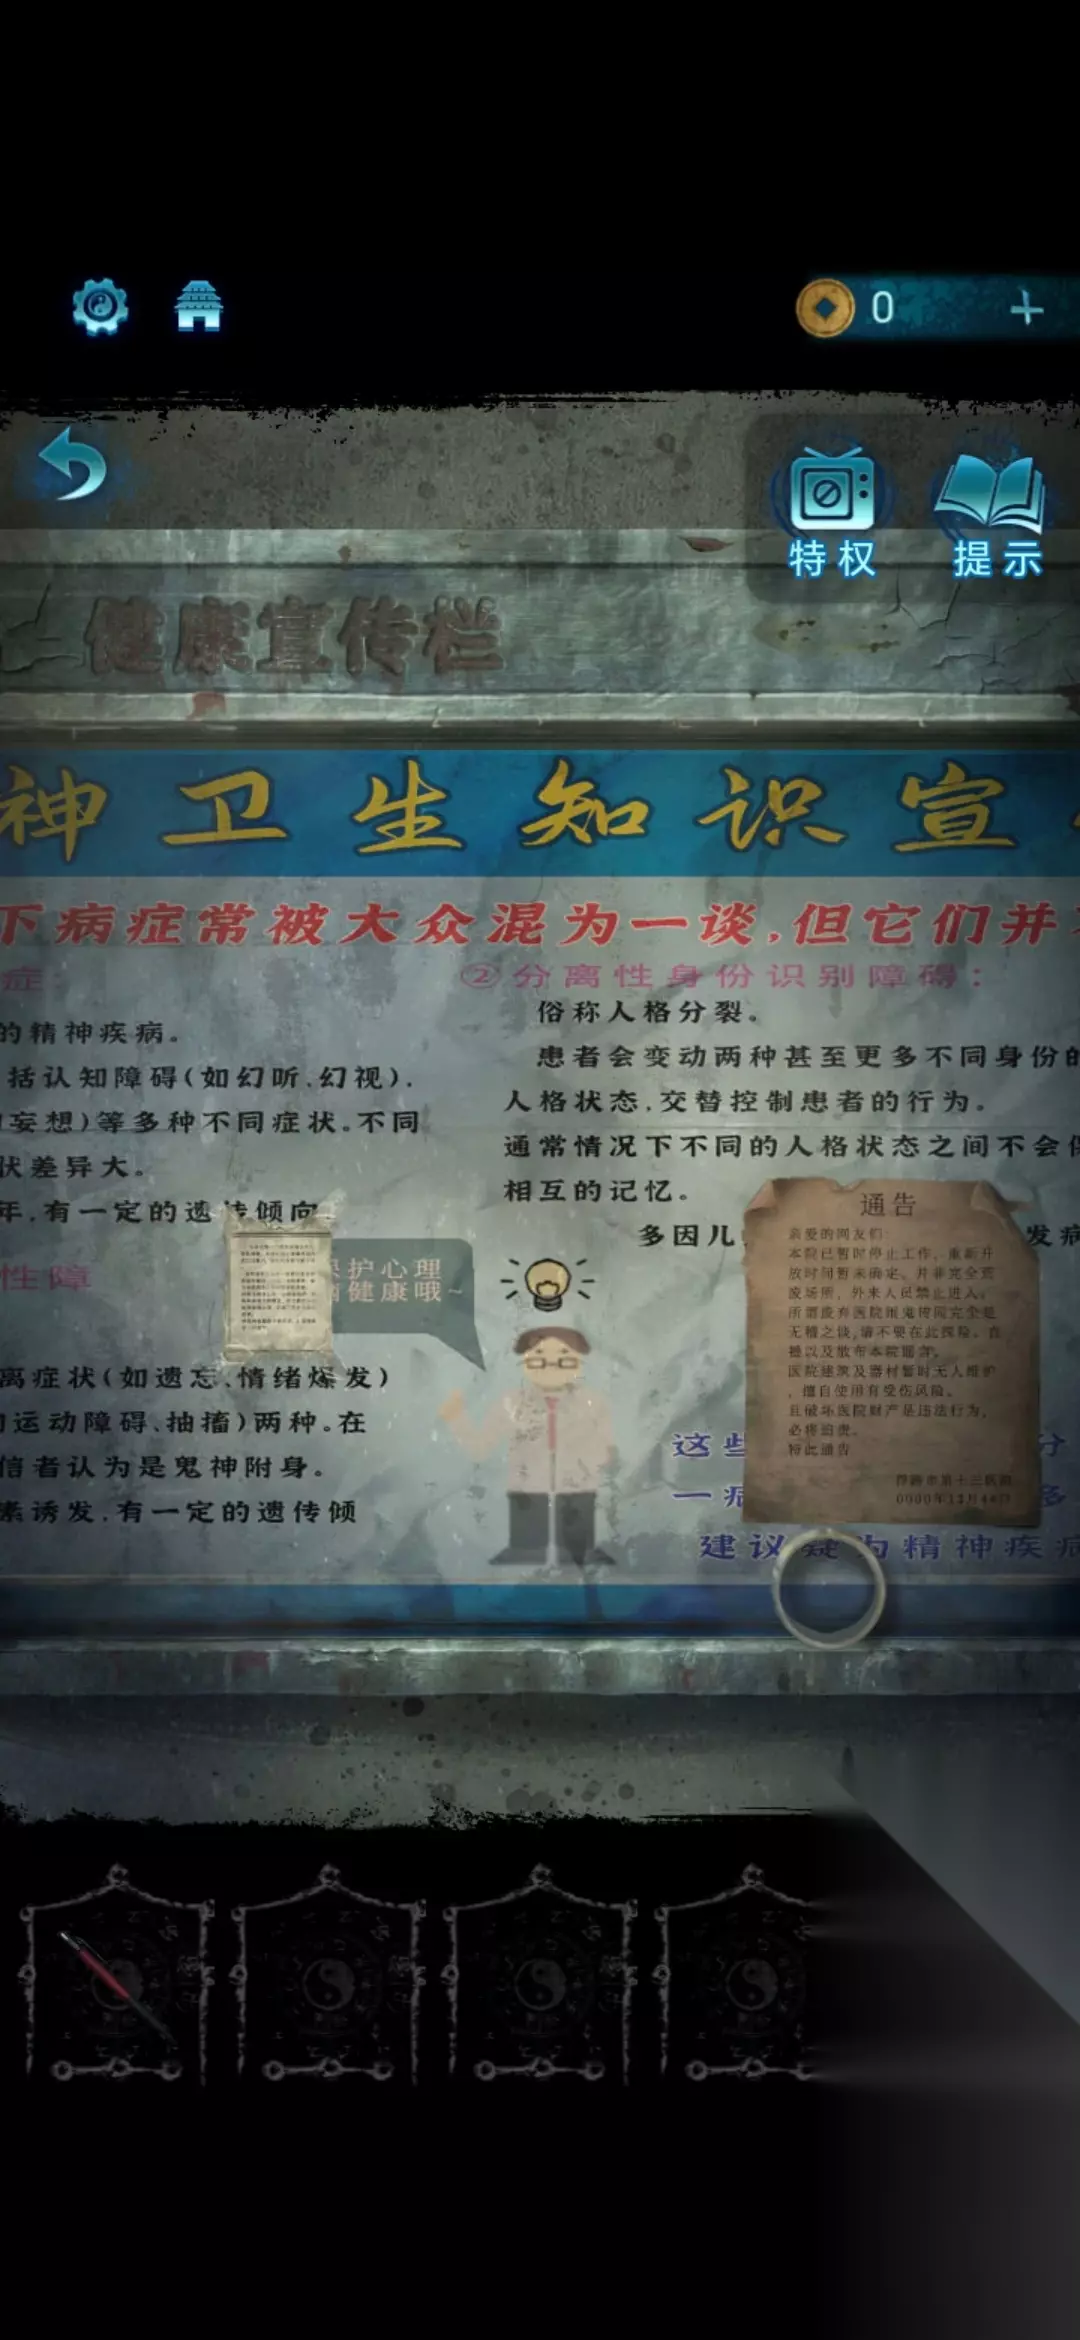 0
特权
提示
健康宣传栏
神卫生知识宣
下病症常被大众混为一谈,但它们并
症:
的精神疾病。
括认知障碍(如幻听、幻视).
妄想)等多种不同症状。不同
状差异大。
年,有一定的遗传倾向
性障
离症状(如遗忘、情绪爆发)
运动障碍、抽搐)两种。在
信者认为是鬼神附身。
素诱发,有一定的遗传倾
②分离性身份识别障碍:
俗称人格分裂。
患者会变动两种甚至更多不同身份的
人格状态,交替控制患者的行为。
通常情况下不同的人格状态之间不会
相互的记忆。
多因儿
发病
护心理
健康哦~
这些
分
一病
多
建议疑为精神疾病
通告
亲爱的网友们:
本院已暂时停止工作,重新开
放时间暂未确定。并非完全荒
凌场所,外来人员禁止进入。
所谓废弃医院闹鬼传闻完全是
无稽之谈,请不要在此探险、直
播以及散布本院谣言。
医院建筑及器材暂时无人维护
,擅自使用有受伤风险。
且破坏医院财产是违法行为,
必将追责。
特此通告
市第十三医院